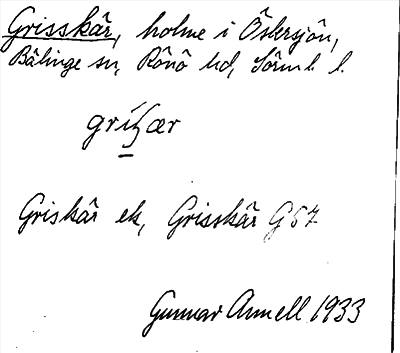 Grisskär, holme i Östersjön,
Bälinge sn, Rönö hd, Sörml. l.
Griskär ek, Grisskär G 57
Gunnar Annell 1933